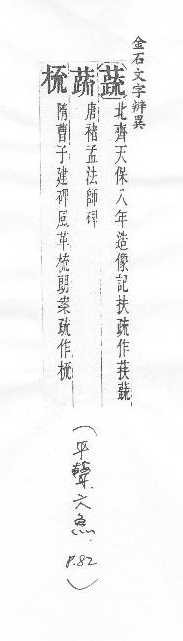 金石文字辨異
蔬 北齊天保八年造像記扶疏作扶蔬
蔬 唐褚孟法師碑
梳 隋曹子建碑風革梳朗案疏作梳
(平聲六魚 P.82)